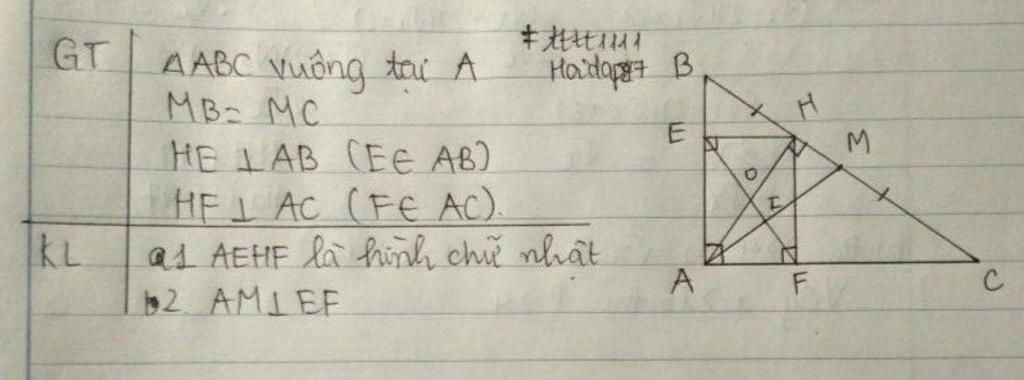 GT
ΔABC vuông tại A
MB = MC
HE ⊥ AB (E∈ AB)
HF ⊥ AC (F∈ AC).
KL
a1 AEHF là hình chữ nhật
b2 AM⊥EF
B
H
E
M
O
I
A
F
C